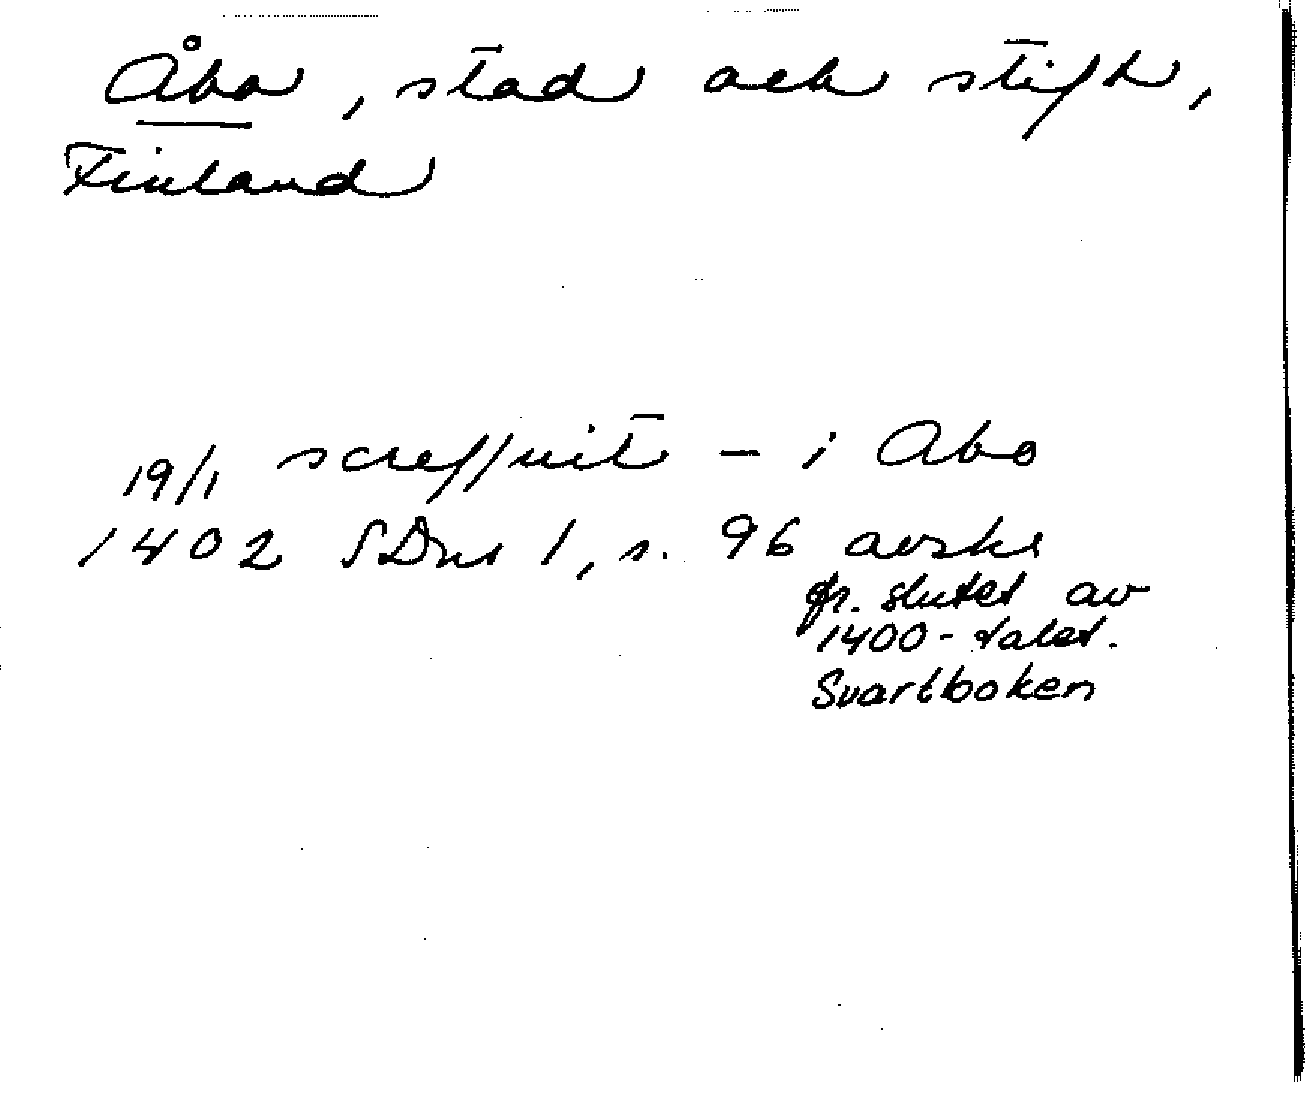 Åbo, stad och stift,
Finland
19/1 screffuit – i Abo
1402 SDns 1, s. 96 avskr
fr. slutet av
1400-talet.
Svartboken